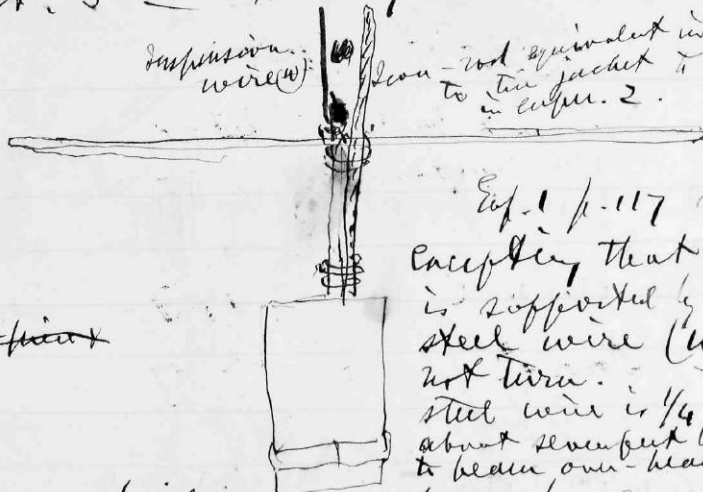 Suspension
wire (w)
Iron-rod equivalent in
to tin jacket
in exper. 2.
Exp. 1 p. 117
excepting that
is supported
steel wire (
not turn.
steel wire is 1/4
about seven feet
to beam over-head